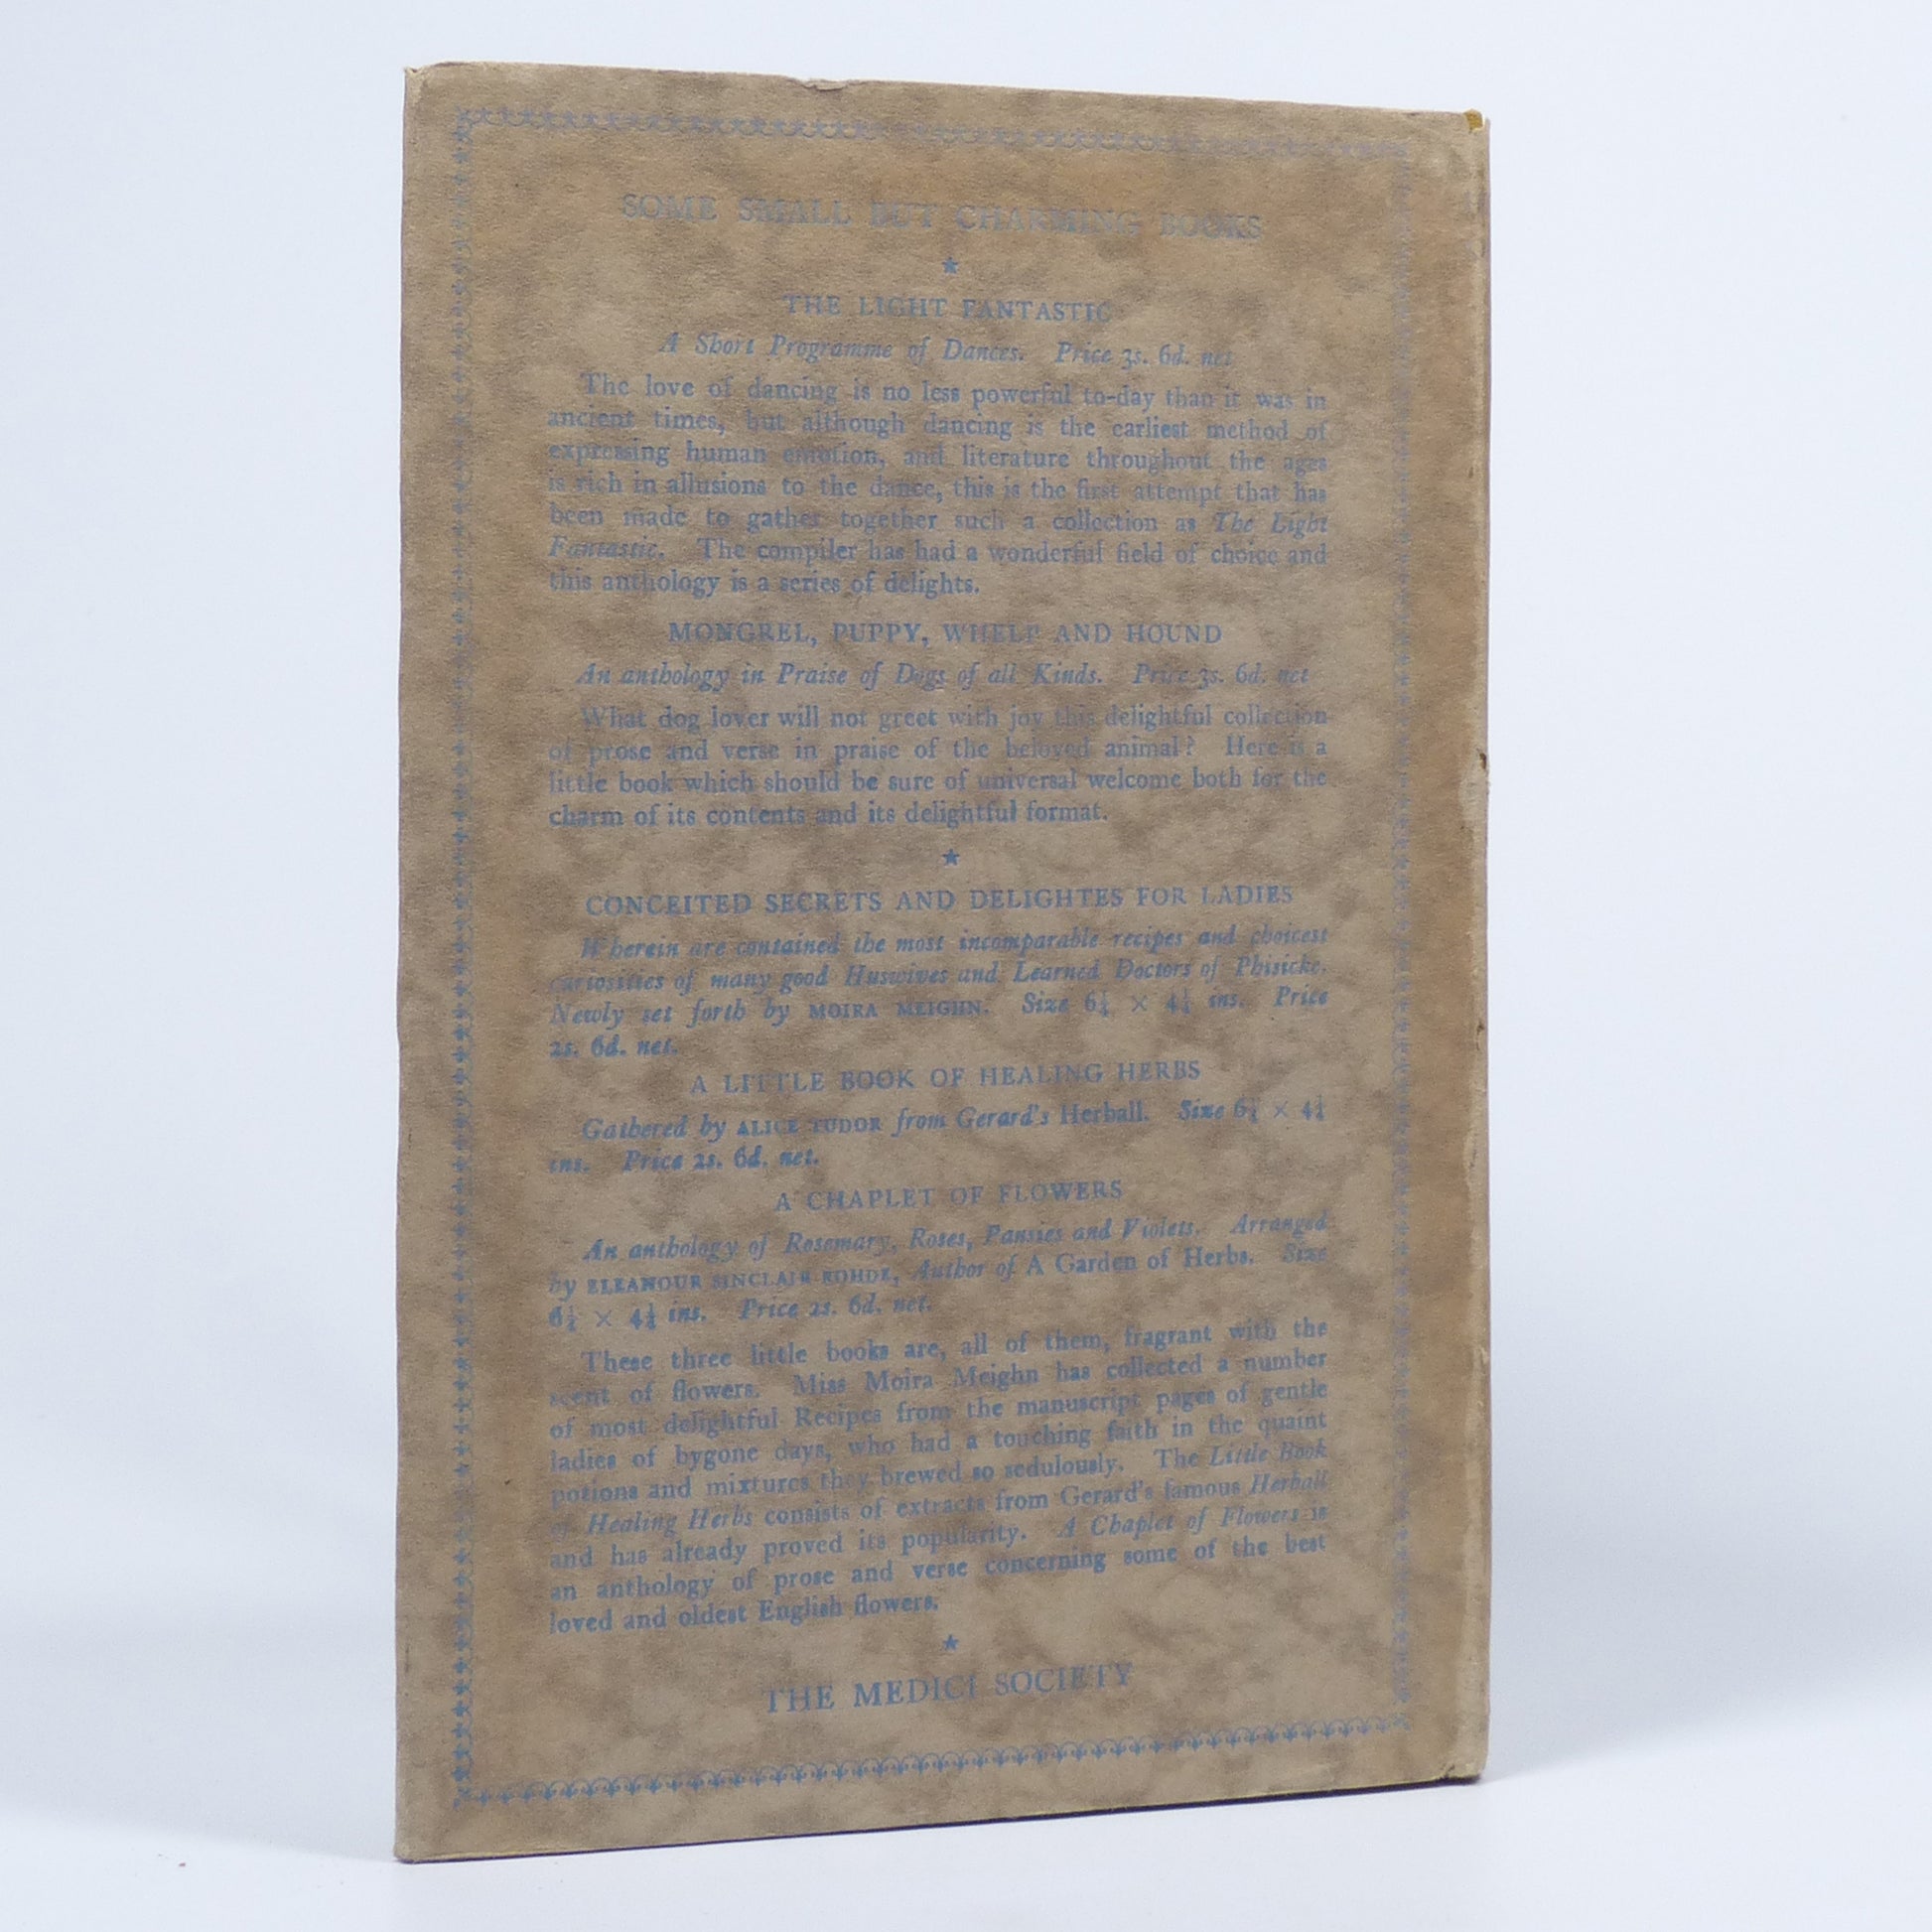 SOME SMALL BUT CHARMING BOOKS
THE LIGHT FANTASTIC
A Short Programme of Dances. Price 3s. 6d. net
The love of dancing is no less powerful to-day than it was in
ancient times, but although dancing is the earliest method of
expressing human emotion, and literature throughout the ages
is rich in allusions to the dance, this is the first attempt that has
been made to gather together such a collection as The Light
Fantastic. The compiler has had a wonderful field of choice and
this anthology is a series of delights.
MONGREL, PUPPY, WHELP AND HOUND
An anthology in Praise of Dogs of all Kinds. Price 3s. 6d. net
What dog lover will not greet with joy this delightful collection
of prose and verse in praise of the beloved animal? Here is a
little book which should be sure of universal welcome both for the
charm of its contents and its delightful format.
CONCEITED SECRETS AND DELIGHTES FOR LADIES
Wherein are contained the most incomparable recipes and choicest
curiosities of many good Huswives and Learned Doctors of Phisicke.
Newly set forth by MOIRA MEIGHN. Size 6¼ × 4¼ ins. Price
2s. 6d. net.
A LITTLE BOOK OF HEALING HERBS
Gathered by ALICE TUDOR from Gerard's Herball. Size 6¼ × 4¼
ins. Price 2s. 6d. net.
A CHAPLET OF FLOWERS
An anthology of Rosemary, Roses, Pansies and Violets. Arranged
by ELEANOUR SINCLAIR ROHDE, Author of A Garden of Herbs. Size
6¼ × 4¼ ins. Price 2s. 6d. net.
These three little books are, all of them, fragrant with the
scent of flowers. Miss Moira Meighn has collected a number
of most delightful Recipes from the manuscript pages of gentle
ladies of bygone days, who had a touching faith in the quaint
potions and mixtures they brewed so sedulously. The Little Book
of Healing Herbs consists of extracts from Gerard's famous Herball
and has already proved its popularity. A Chaplet of Flowers is
an anthology of prose and verse concerning some of the best
loved and oldest English flowers.
THE MEDICI SOCIETY